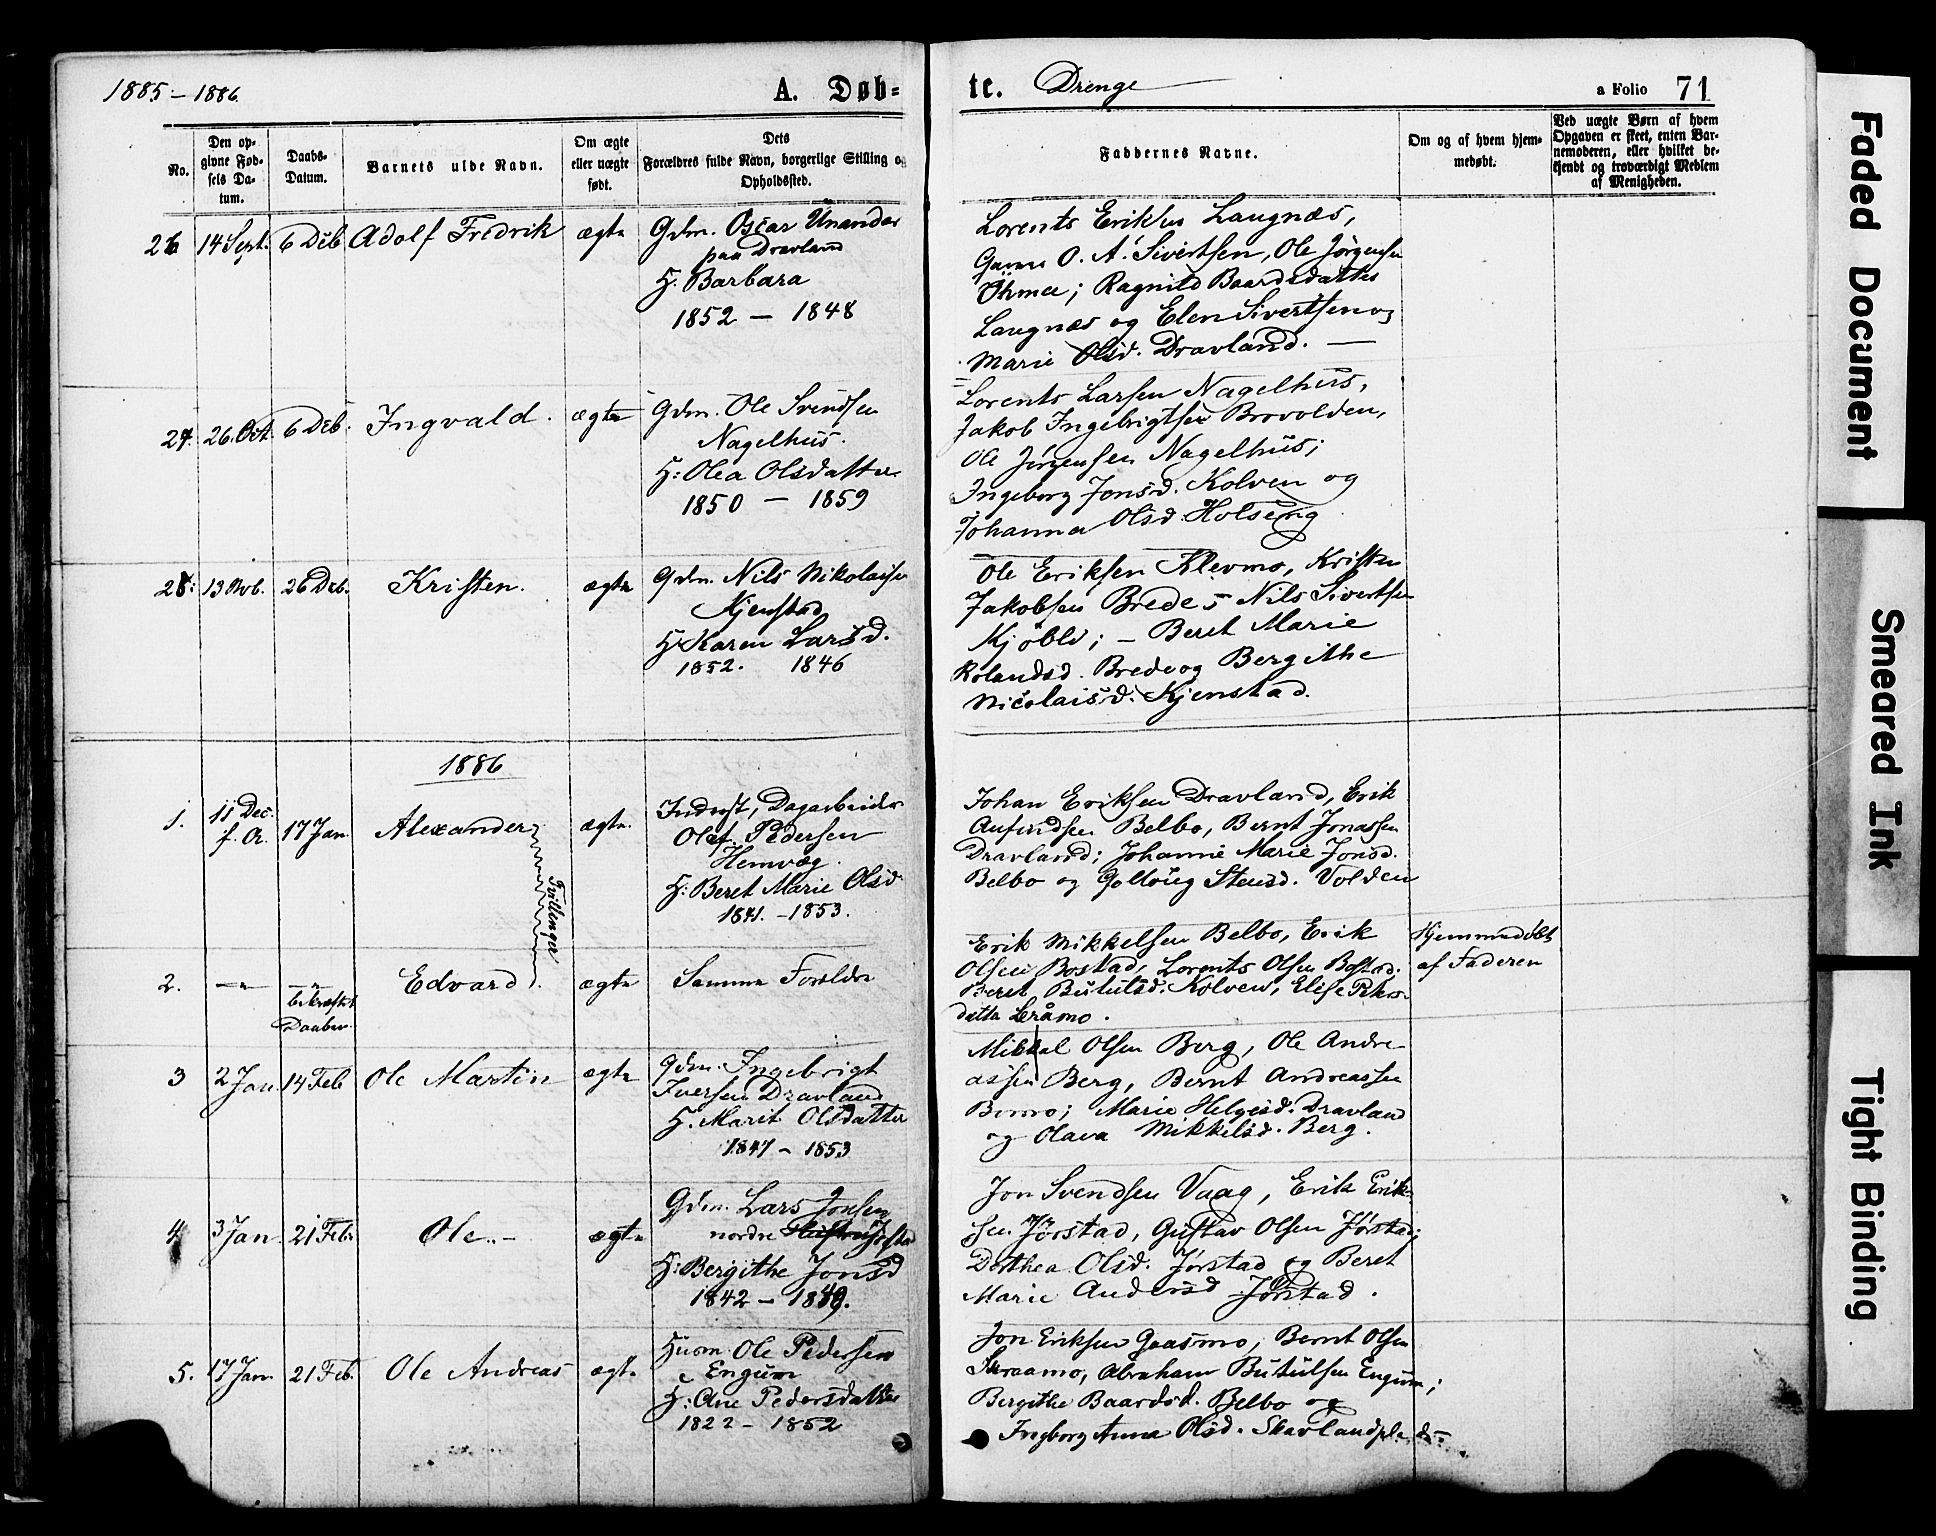 1885 – 1886
A. Døb=
te. Drenge
a Folio 71
No.
Den op=
givne Fød=
sels Da=
tum.
Daabs=
Datum.
Barnets ulde Navn.
Om ægte
eller uægte
født.
Dets
Forældres fulde Navn, borgerlige Stilling og
Opholdssted.
Faddernes Navne.
Om og af hvem hjem=
medøbt.
Ved uægte Børn af hvem
Opgaven er skeet, enten Bar=
nemoderen, eller hvilket be=
kjendt og troværdigt Medlem
af Menigheden.
26 14 Sept. 6 Deb Adolf Fredrik ægte
Gdm. Oscar Unander
paa Dravland
H. Barbara
1852 — 1848
Lorents Eriksen Langnæs,
O. A. Sivertsen, Ole Jørgensen
; Ragnild Baardsdatter
Langnæs og Elen Sivertsen og
Marie Olsd. Dravland. —
27. 26. Oct. 6 Deb. Ingvald. ægte
Gdm. Ole Svendsen
Nagelhus.
H: Olea Olsdatter
1850 — 1859
Lorents Larsen Nagelhus,
Jakob Ingebrigtsen Brovolden,
Ole Jørgensen Nagelhus;
Ingeborg Jonsd. Kolven og
Johanna Olsd. Holseng
28: 13 Nob. 26 Deb. Kristen. ægte
Gdm. Nils Nikolaisen
Kjenstad
H. Karen Larsd.
1852. 1846
Ole Eriksen Klevmo, Kristen
Jakobsen Brede, Nils Sivertsen
Kjøbli; – Beret Marie
Rolandsd. Brede og Bergithe
Nicolaisd. Kjenstad.
1886
1. 11 Dec. f. A. 17 Jan Alexander ægte.
Inderst, Dagarbeider
Olaf Pedersen
Hemvæg.
H: Beret Marie Olsd.
1841. – 1853.
Tvillinger
Johan Eriksen Dravland, Erik
Anfindsen Belbo, Bernt Jonassen
Dravland; Johanne Marie Jonsd.
Belbo og Golloug Stensd. Volden
2. —"— —"— Edvard. ægte Samme Forældre
bekræftet
Daaben.
Erik Mikkelsen Belbo, Erik
Olsen Bostad, Lorents Olsen Bostad.
Beret Bututsd. Kolven, Elise Peters-
datter Leråmo.
Hjemmedøbt
af Faderen
3 2 Jan. 14 Feb Ole Martin ægte
Gdm. Ingebrigt
Iversen Dravland
H. Marit Olsdatter
1847 – 1853
Mikkal Olsen Berg, Ole Andre-
assen Berg, Bernt Andreassen
Bomo; Marie Helgesd. Dravland
og Olava Mikkelsd. Berg.
4. 3 Jan. 21 Feb. Ole.. – ægte
Gdm. Lars Jonsen
nordre
H: Bergithe Jonsd
1842 – 1849.
Jon Svendsen Vaag, Erik Erik-
sen Jørstad, Gustav Olsen Jørstad;
Dorthea Olsd. Jørstad og Beret
Marie Andersd Jørstad.
5. 17 Jan. 21 Feb. Ole Andreas ægte
Husm. Ole Pedersen
Engum
H: Ane Pedersdatter
1822 – 1852
Jon Eriksen Graasmo, Bernt Olsen
Skraamo, Abraham Bututsen Engum;
Bergithe Baardsd. Belbo og
Ingborg Anna Olsd. Skavlandpl. ds–
Faded Document
Smeared Ink
Tight Binding